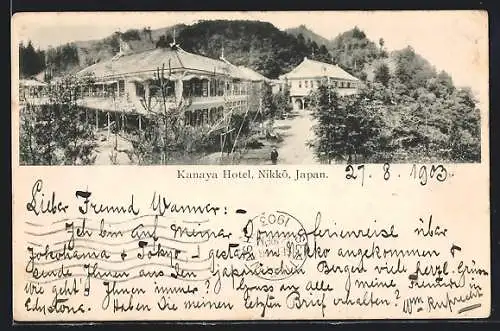 Kanaya Hotel, Nikkō, Japan.
27. 8. 1903
Lieber Freund Wanner:
Ich bin auf meiner Sommerferienreise über
Yokohama & Tokyo gestern in Nikko angekommen &
sende Ihnen aus den Japanischen Bergen viele herzl. Grüsse
Wie geht's Ihnen immer? Gruss an alle meine Freunde in
Edystona. Haben Sie meinen letzten Brief erhalten? Wm Ruprecht
1903